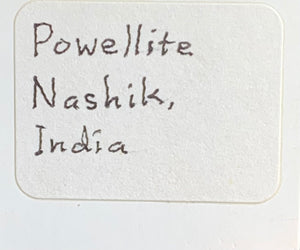 Powellite
Nashik,
India